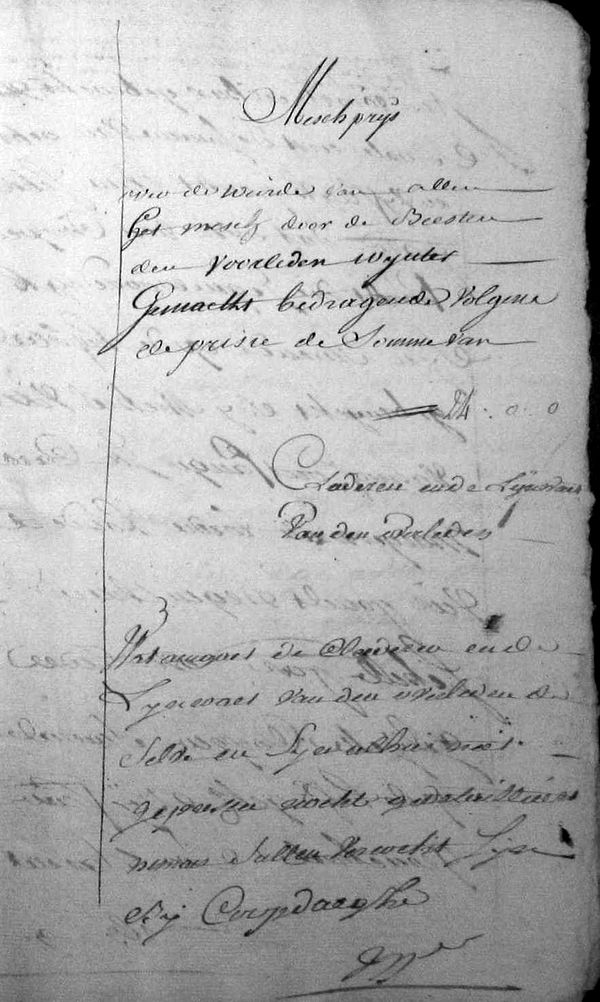 Meschprys
voor de weirde van allen
het mesch door de Beesten
den voorleden wynter
Gemaeckt bedragende volgens
de prisie de Somme van
24 : 0 : 0
Claderen ende Lynwaet
Van den overleden
Wat aengaet de Claderen ende
Lynwaet van den overleden de
Selve en Syn alhier niet
gepresen nochte
nemaer sullen verkocht Syn
by Coopdaeghe